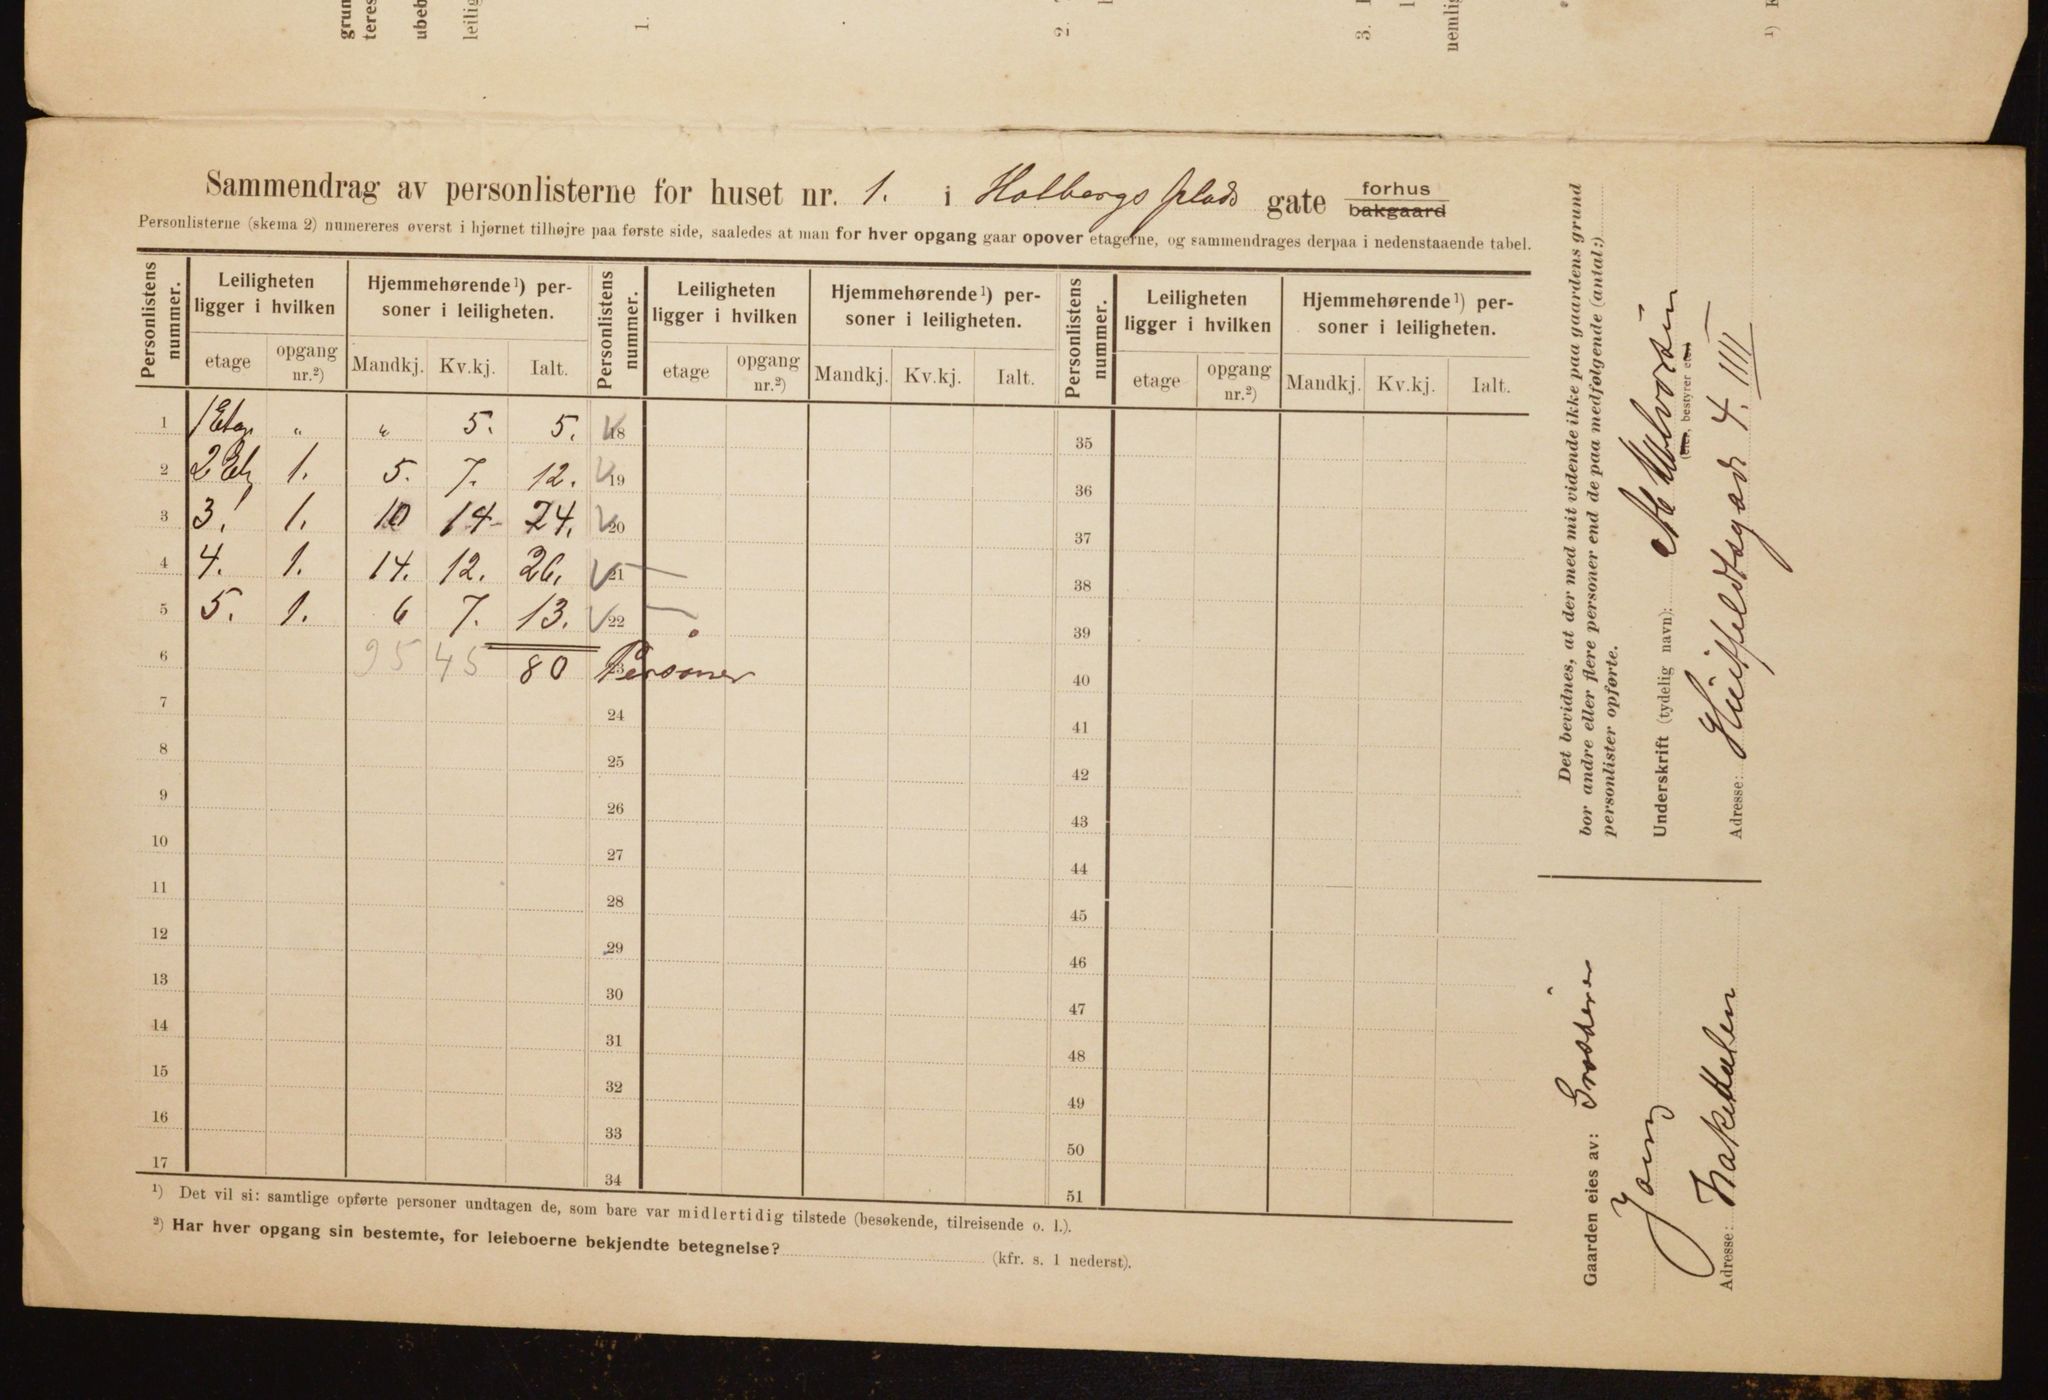 grun
teres
ubeb
leilig
1.
2.
3.
nemlig
¹)
Sammendrag av personlisterne for huset nr. 1. i Holbergs plads gate forhus
bakgaard
Personlisterne (skema 2) numereres øverst i hjørnet tilhøjre paa første side, saaledes at man for hver opgang gaar opover etagerne, og sammendrages derpaa i nedenstaaende tabel.
Personlistens nummer. Leiligheten ligger i hvilken Hjemmehørende¹) personer i leiligheten. Personlistens nummer. Leiligheten ligger i hvilken Hjemmehørende¹) personer i leiligheten. Personlistens nummer. Leiligheten ligger i hvilken Hjemmehørende¹) personer i leiligheten.
etage opgang nr.²) Mandkj. Kv.kj. Ialt. etage opgang nr.²) Mandkj. Kv.kj. Ialt. etage opgang nr.²) Mandkj. Kv.kj. Ialt.
1 1 Etag. " " 5. 5. 18 35
2 2 Et 1. 5. 7. 12. 19 36
3 3. 1. 10 14 24. 20 37
4 4. 1. 14. 12. 26. 21 38
5 5. 1. 6 7. 13. 22 39
6 35 45 80 Personer 40
7 24 41
8 25 42
9 26 43
10 27 44
11 28 45
12 29 46
13 30 47
14 31 48
15 32 49
16 33 50
17 34 51
¹) Det vil si: samtlige opførte personer undtagen de, som bare var midlertidig tilstede (besøkende, tilreisende o. l.).
²) Har hver opgang sin bestemte, for leieboerne bekjendte betegnelse? (kfr. s. 1 nederst).
Det bevidnes, at der med mit vidende ikke paa gaardens grund
bor andre eller flere personer end de paa medfølgende (antal:)
personlister opførte.
Underskrift (tydelig navn): Halvorsen
(eier, bestyrer etc.)
Adresse: Huitfeldtsgade 4. IIII
Gaarden eies av: Grosserer
Young
Adresse: Hakedalen